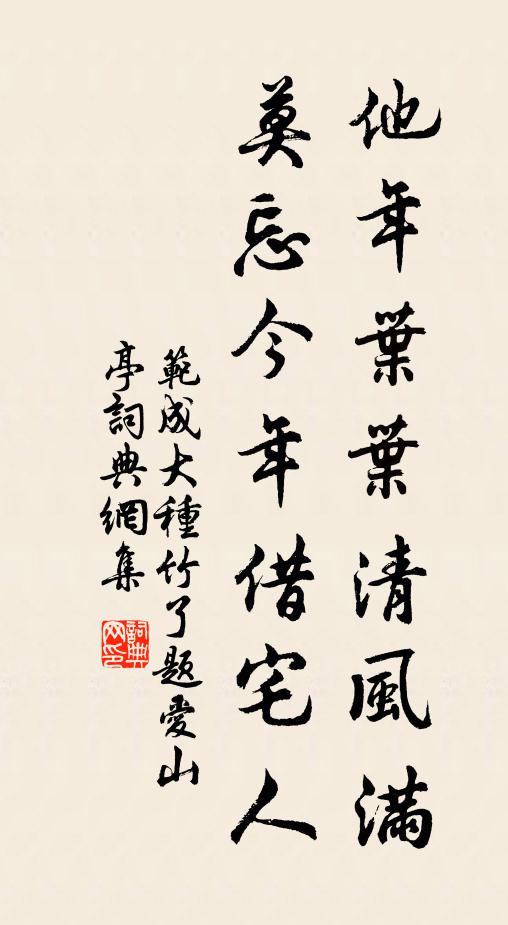 他年葉葉清風滿
莫忘今年借宅人
範成大種竹了題愛山
亭詞典網集
詞典网印